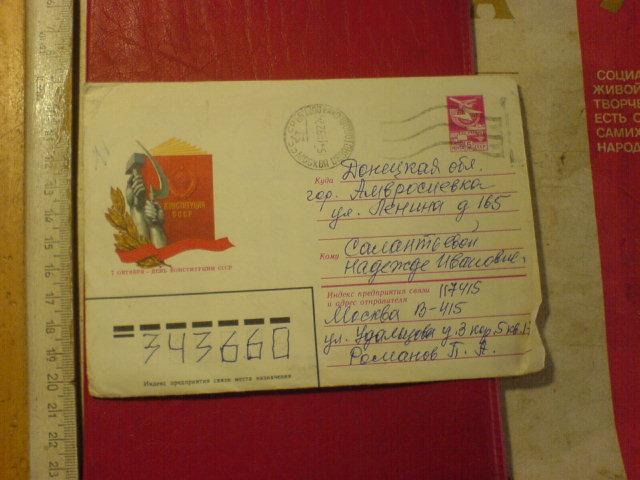 КОНСТИТУЦИЯ
СССР
7 ОКТЯБРЯ – ДЕНЬ КОНСТИТУЦИИ СССР
Куда Донецкая обл.
гор. Амвросиевка
ул. Ленина д 165
Кому Салантьевой
Надежде Ивановне
Индекс предприятия связи и адрес отправителя 117415
Москва В-415
ул. Удальцова д. 3 кор. 5 кв.
Романов П. А.
343660
Индекс предприятия связи места назначения
СОЦИА
ЖИВОЙ
ТВОРЧЕ
ЕСТЬ С
САМИХ
НАРОД